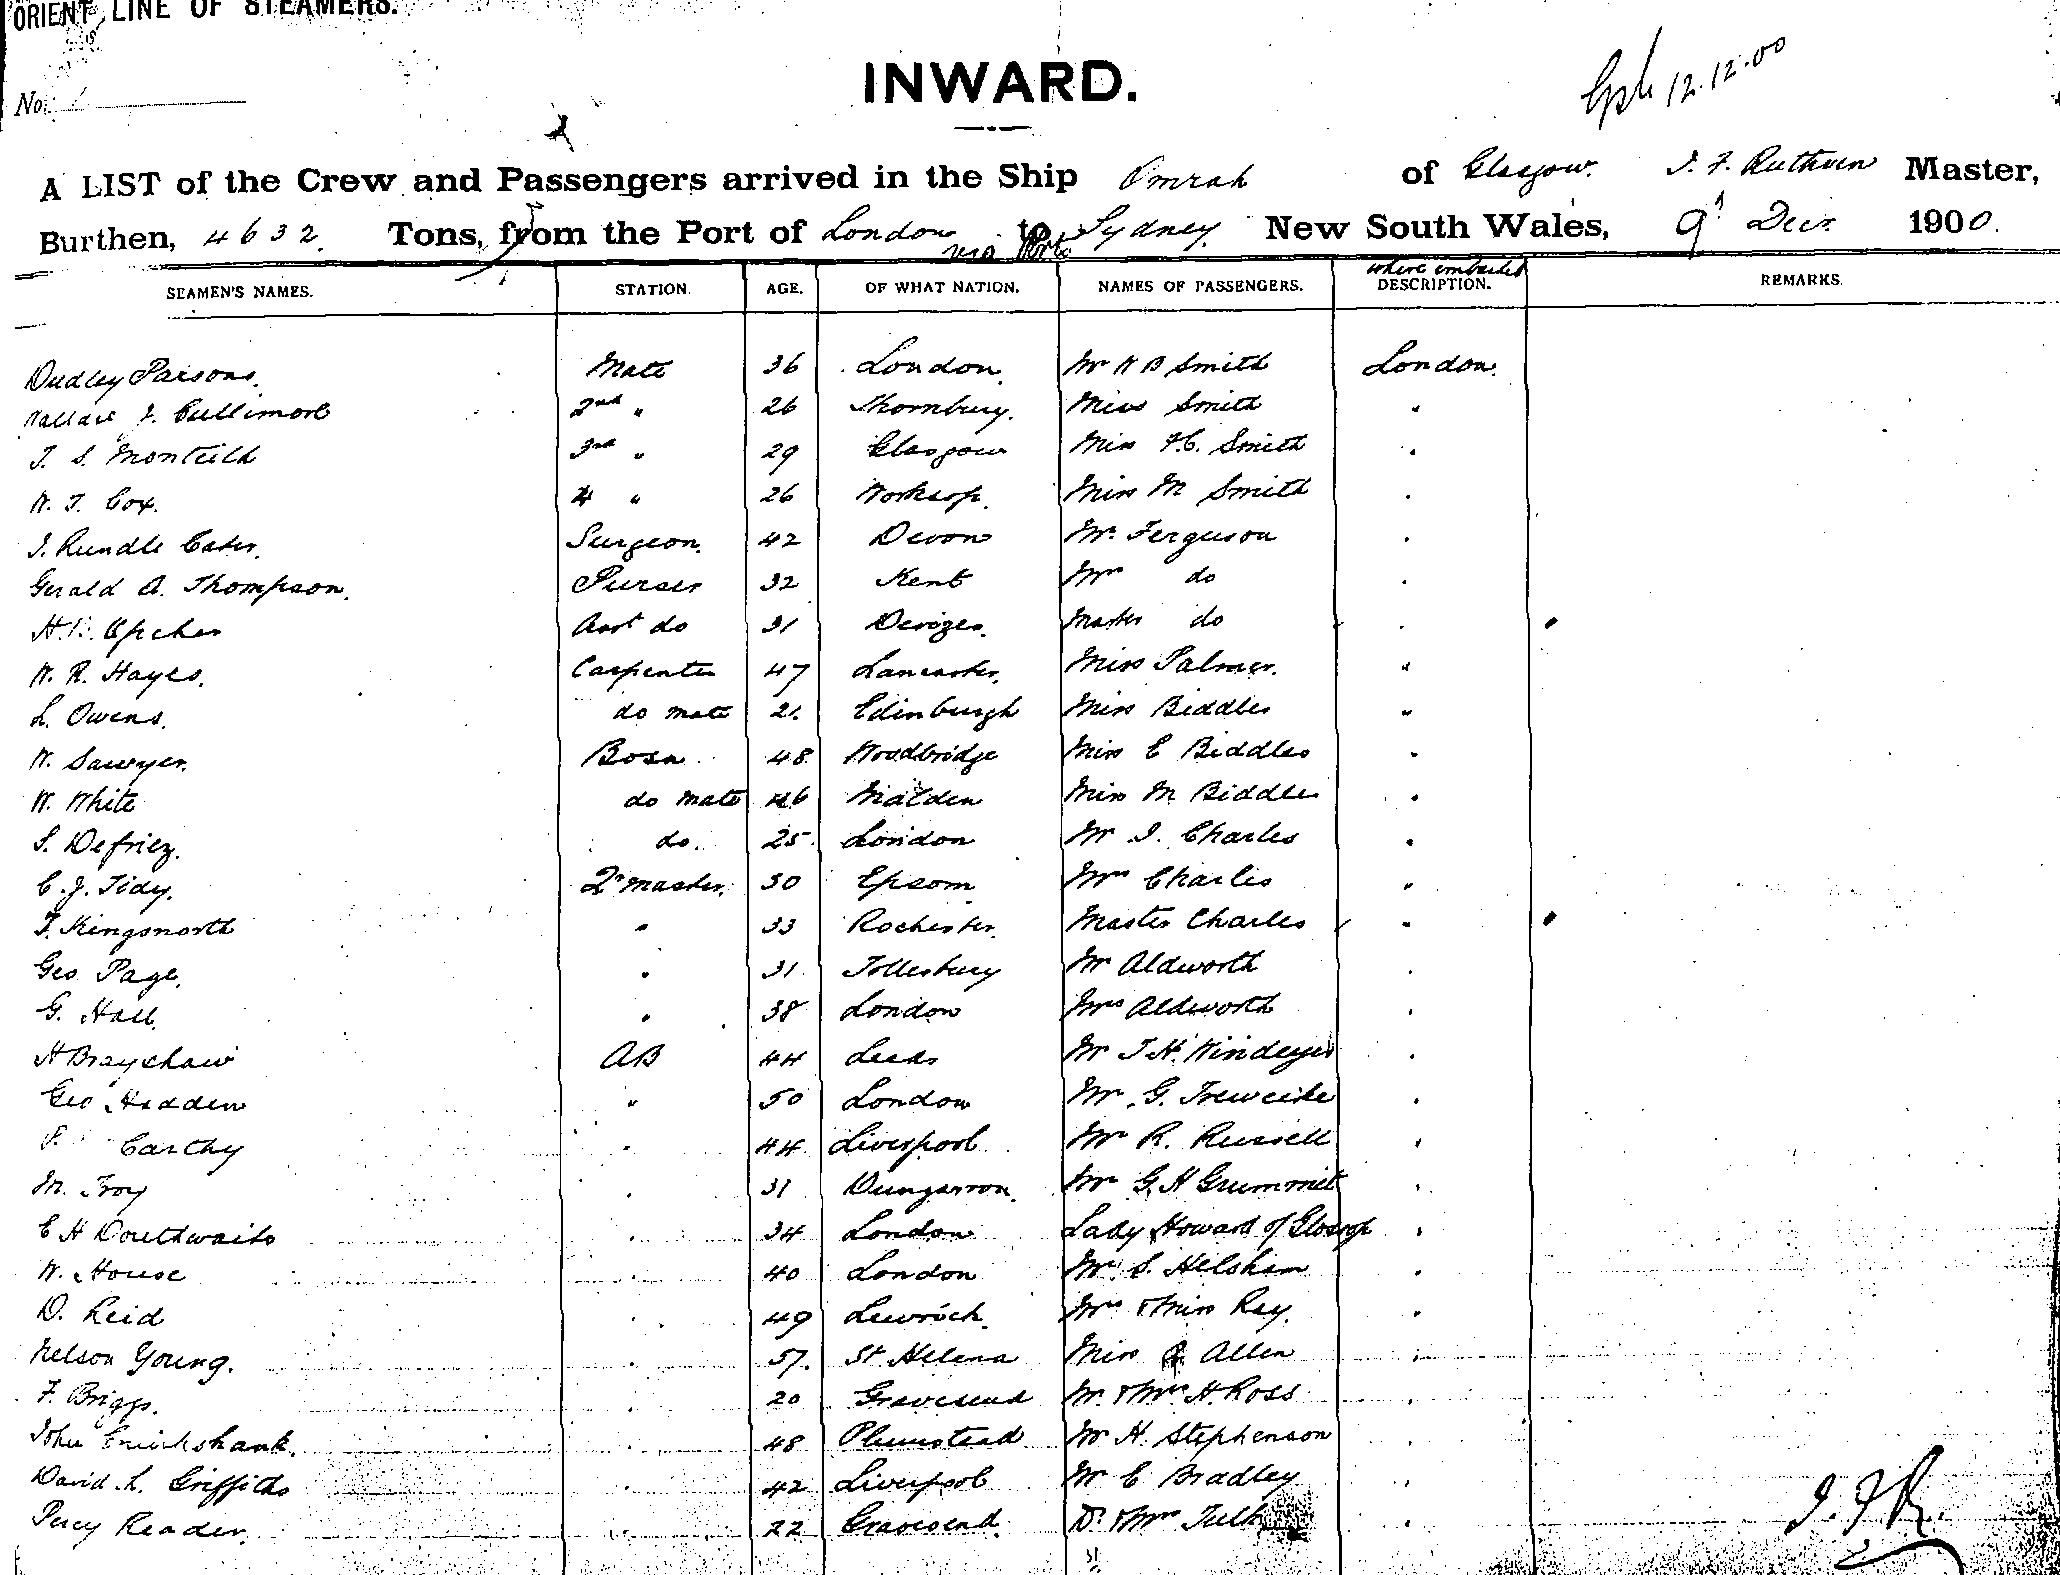 ORIENT LINE OF STEAMERS.
INWARD.
No.
12.12.00
A LIST of the Crew and Passengers arrived in the Ship Omrah of Glasgow. J. F. Ruthven Master,
Burthen, 4632 Tons, from the Port of London via Ports to Sydney New South Wales, 9th Decr 1900.
SEAMEN'S NAMES. STATION. AGE. OF WHAT NATION. NAMES OF PASSENGERS. where embarked DESCRIPTION. REMARKS.
Dudley Parsons. Mate 36 London. Mr H B Smith London.
Wallace J. Cullimore 2nd " 26 Thornbury. Miss Smith "
J. S. Monteith 3rd " 29 Glasgow Miss F.C. Smith "
W. T. Cox. 4 " 26 Worksop. Miss M Smith "
J. Rundle Cater. Surgeon. 42 Devon Mr. Ferguson "
Gerald A. Thompson. Purser 32 Kent Mrs do "
Asst do 31 Devizes. Master do "
W. R. Hayes. Carpenter 47 Lancaster. Miss Palmer. "
L. Owens. do mate 21. Edinburgh Miss Biddles "
W. Sawyer. Bosn 48 Woodbridge Miss E Biddles "
W. White do mate 46 Malden Miss M Biddles "
S. Defriez. do. 25 London Mr J. Charles "
C. J. Tidy. Qr master. 30 Epsom Mrs Charles "
T. Kingsnorth " 33 Rochester. Master Charles "
Geo Page. " 31 Tollesbury Mr Aldworth "
G. Hall. " 38 London Mrs Aldworth "
H Brayshaw AB 44 Leeds Mr T. H. Windeyer "
Geo Hadden " 50 London Mr. G. Treweeke "
Carthy " 44 Liverpool Mr R. Russell "
M. Troy " 31 Dungarvon. Mr G. H Grummit "
C H Douthwaite " 34 London Lady Howard of Glossop "
W. House " 40 London Mr. S. Helsham "
D. Leid " 49 Lerwick. Mrs & Miss Ray. "
Nelson Young. " 57. St Helena Miss Allen "
F. Briggs. " 20 Gravesend Mr. & Mrs H. Ross "
John Cruickshank. " 48 Plumstead Mr H. Stephenson "
David L. Griffiths " 42 Liverpool Mr E Bradley "
Percy Reader. " 22 Gravesend. Dr & Mrs Tulk "
J. F. R.